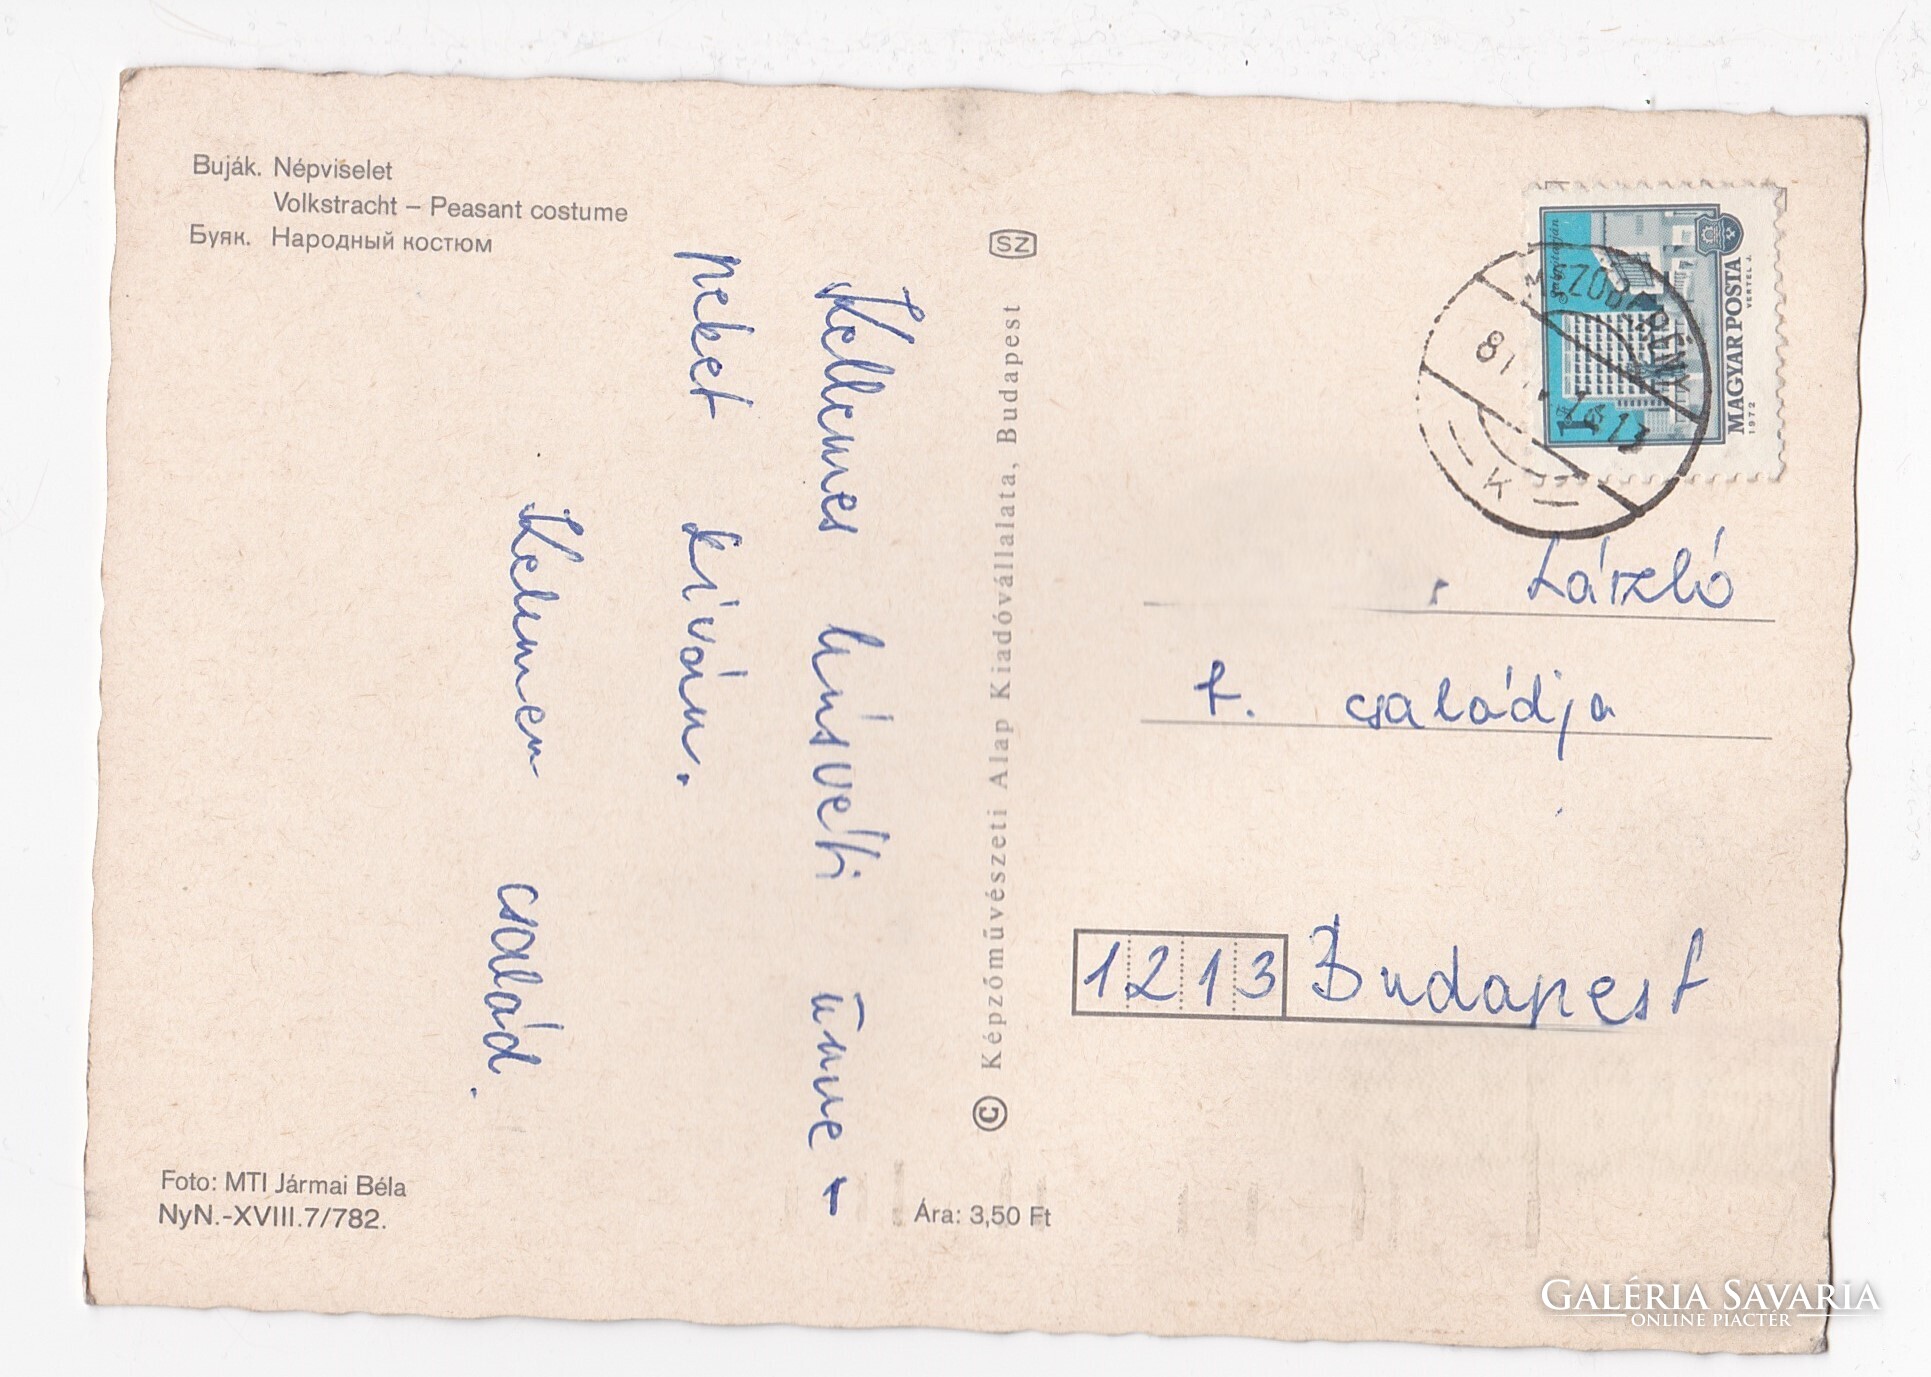 Buják. Népviselet
Volkstracht – Peasant costume
Буяк. Народный костюм
Kellemes húsvéti ünne-
peket kíván.
Kelemen család.
Foto: MTI Jármai Béla
NyN.-XVIII.7/782.
SZ
© Képzőművészeti Alap Kiadóvállalata, Budapest
Ára: 3,50 Ft
Salgótarján
1 Ft
MAGYAR POSTA
1972
VERTEL J.
MEZŐBERÉNY
81
K
László
t. családja
1213 Budapest
GALÉRIA SAVARIA
ONLINE PIACTÉR